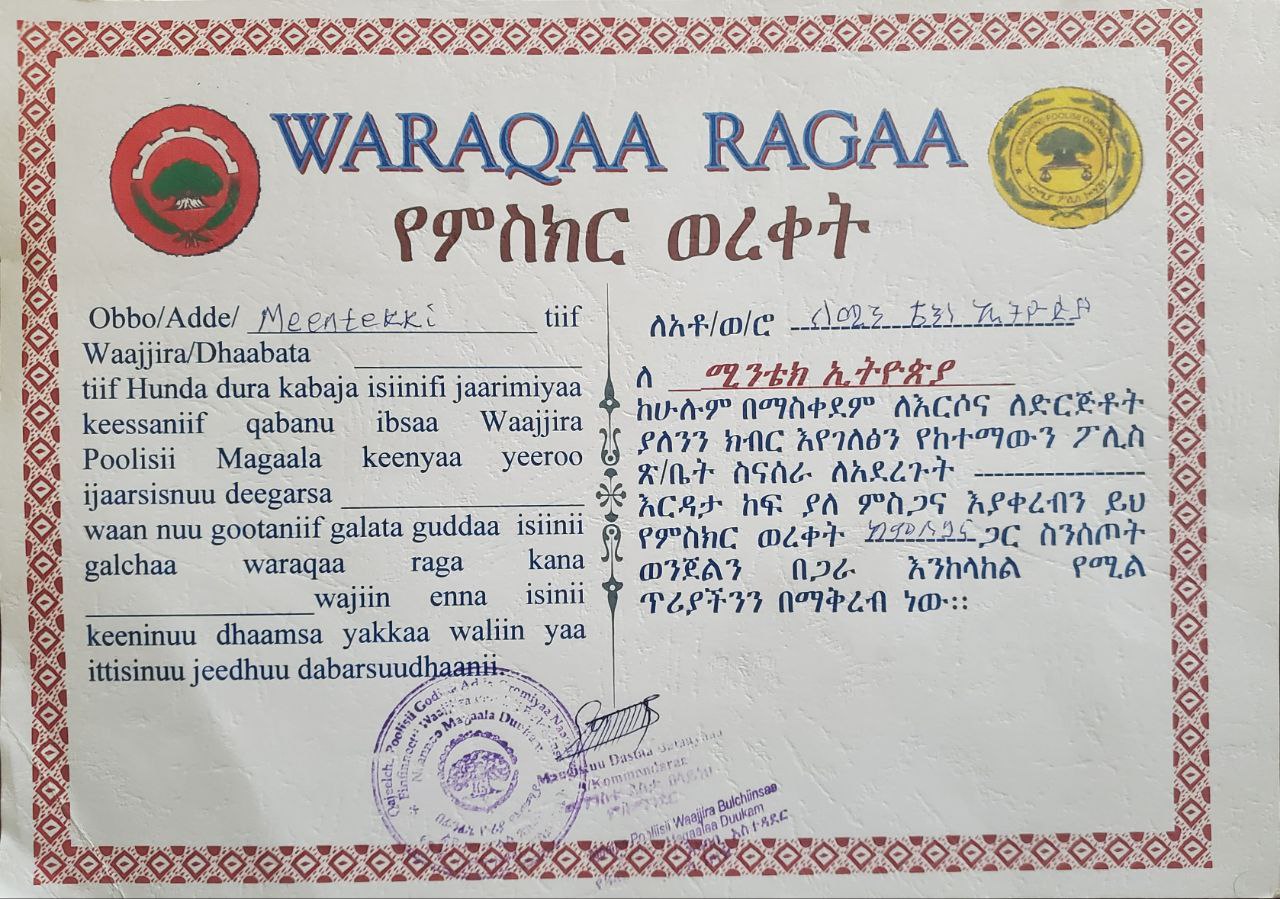 WARAQAA RAGAA
የምስክር ወረቀት
Obbo/Adde/ Meentekki tiif
Waajjira/Dhaabata
tiif Hunda dura kabaja isiinifi jaarimiyaa
keessaniif qabanu ibsaa Waajjira
Poolisii Magaala keenyaa yeeroo
ijaarsisnuu deegarsa
waan nuu gootaniif galata guddaa isiinii
galchaa waraqaa raga kana
wajiin enna isinii
keeninuu dhaamsa yakkaa waliin yaa
ittisinuu jeedhuu dabarsuudhaanii.
ለአቶ/ወ/ሮ
ለ ሚንቴክ ኢትዮጵያ
ከሁሉም በማስቀደም ለእርሶና ለድርጅቶት
ያለንን ክብር እየገለፅን የከተማውን ፖሊስ
ጽ/ቤት ስናሰራ ለአደረጉት
እርዳታ ከፍ ያለ ምስጋና እያቀረብን ይህ
የምስክር ወረቀት ከምስጋና ጋር ስንሰጦት
ወንጀልን በጋራ እንከላከል የሚል
ጥሪያችንን በማቅረብ ነው።
Magaala Duukam
/Kommandaraa
Poliisii Waajjira Bulchiinsaa
Magaalaa Duukam